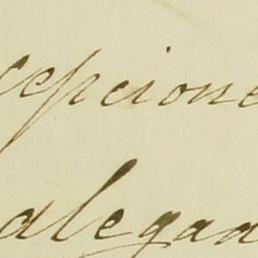 cepcione
alegan